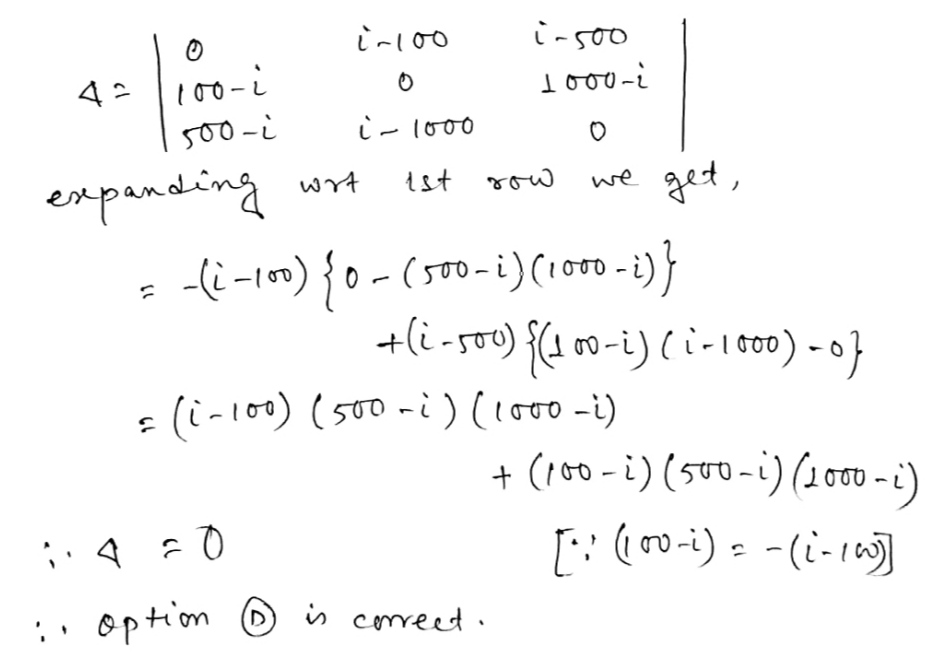 Δ = | 0 i-100 i-500 |
| 100-i 0 1000-i |
| 500-i i-1000 0 |
expanding wrt 1st row we get,
= -(i-100) {0 - (500-i)(1000-i)}
+(i-500) {(100-i)(i-1000) - 0}
= (i-100) (500-i) (1000-i)
+ (100-i) (500-i) (1000-i)
∴ Δ = 0 [∵ (100-i) = -(i-100)]
∴ option Ⓓ is correct.